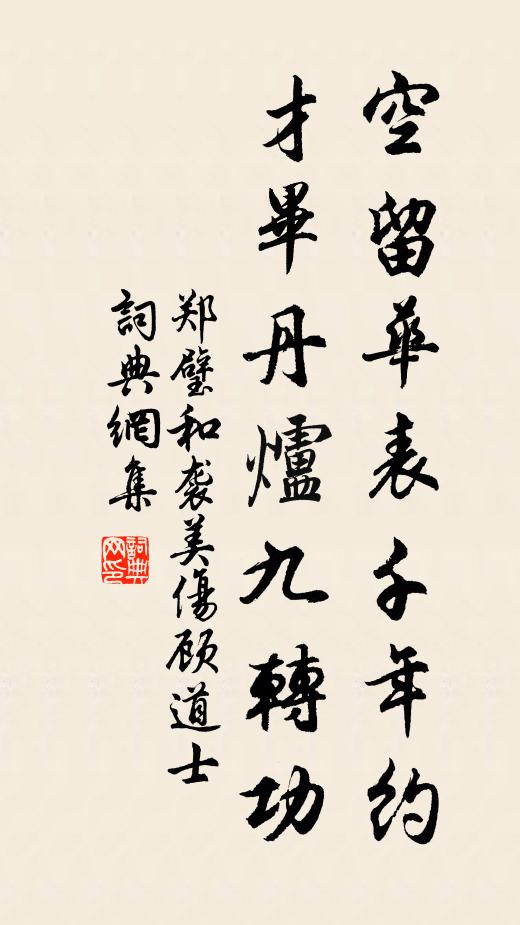 空留華表千年約
才畢丹爐九轉功
郑璧和袭美傷顾道士
詞典網集
詞典网印